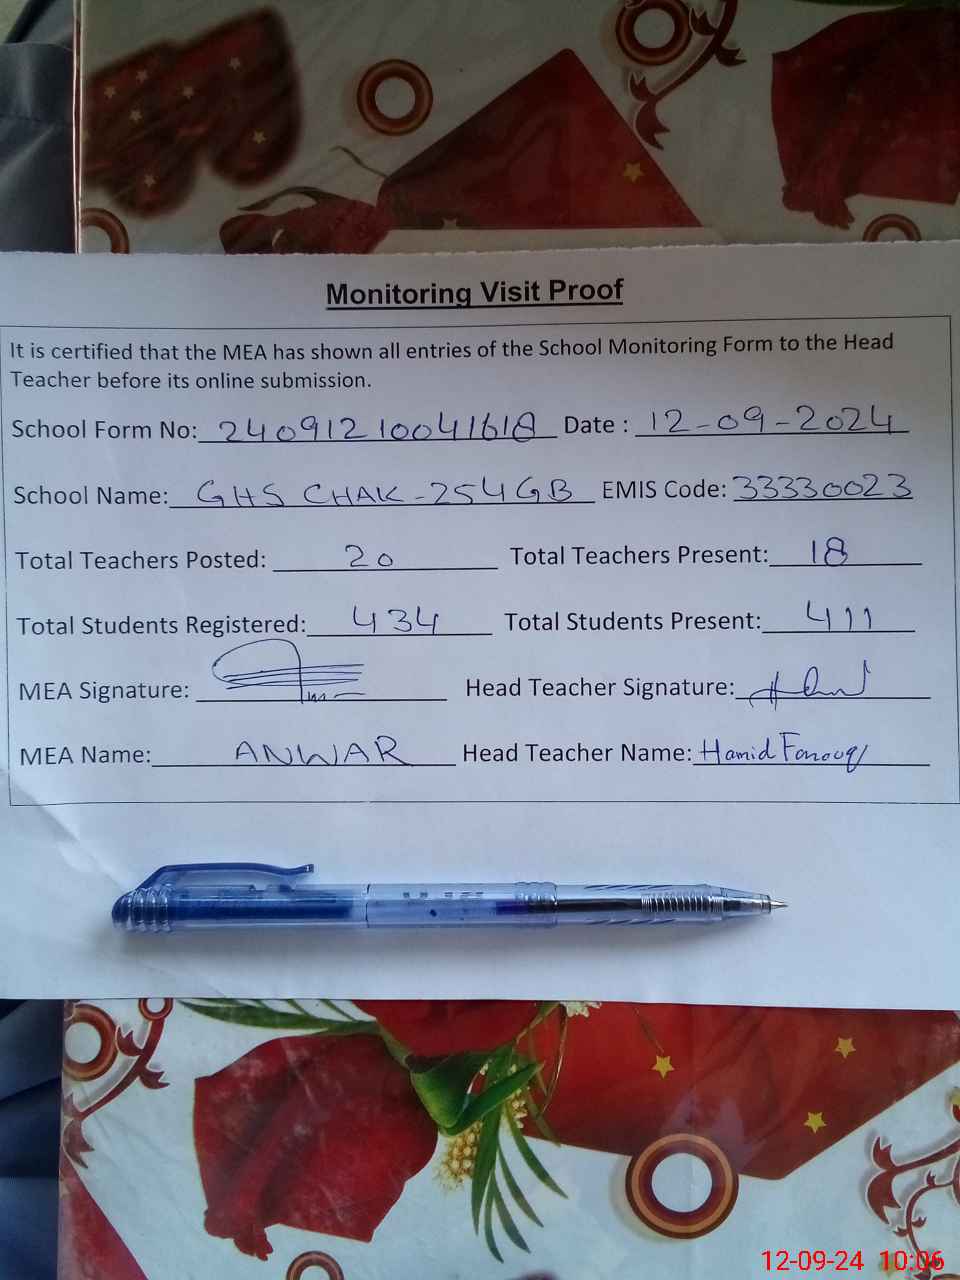 Monitoring Visit Proof
It is certified that the MEA has shown all entries of the School Monitoring Form to the Head
Teacher before its online submission.
School Form No: 24091210041618 Date : 12-09-2024
School Name: GHS CHAK-254GB EMIS Code: 33330023
Total Teachers Posted: 20 Total Teachers Present: 18
Total Students Registered: 434 Total Students Present: 411
MEA Signature: Head Teacher Signature:
MEA Name: ANWAR Head Teacher Name: Hamid Farooq
12-09-24 10:06